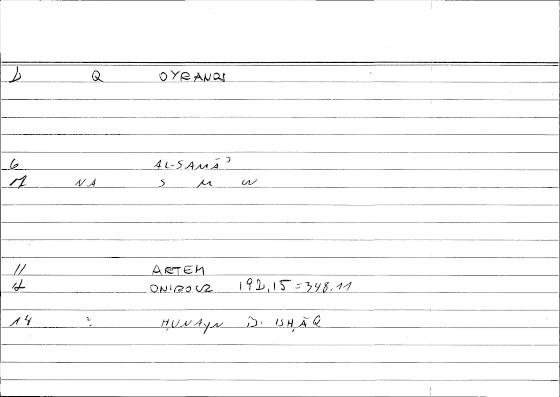 D Q OYRANOS
6 AL-SAMĀʾ
NA S M W
11 ARTEM
ONIROCR 192,15 = 348.11
14 : ḤUNAYN B. ISḤĀQ